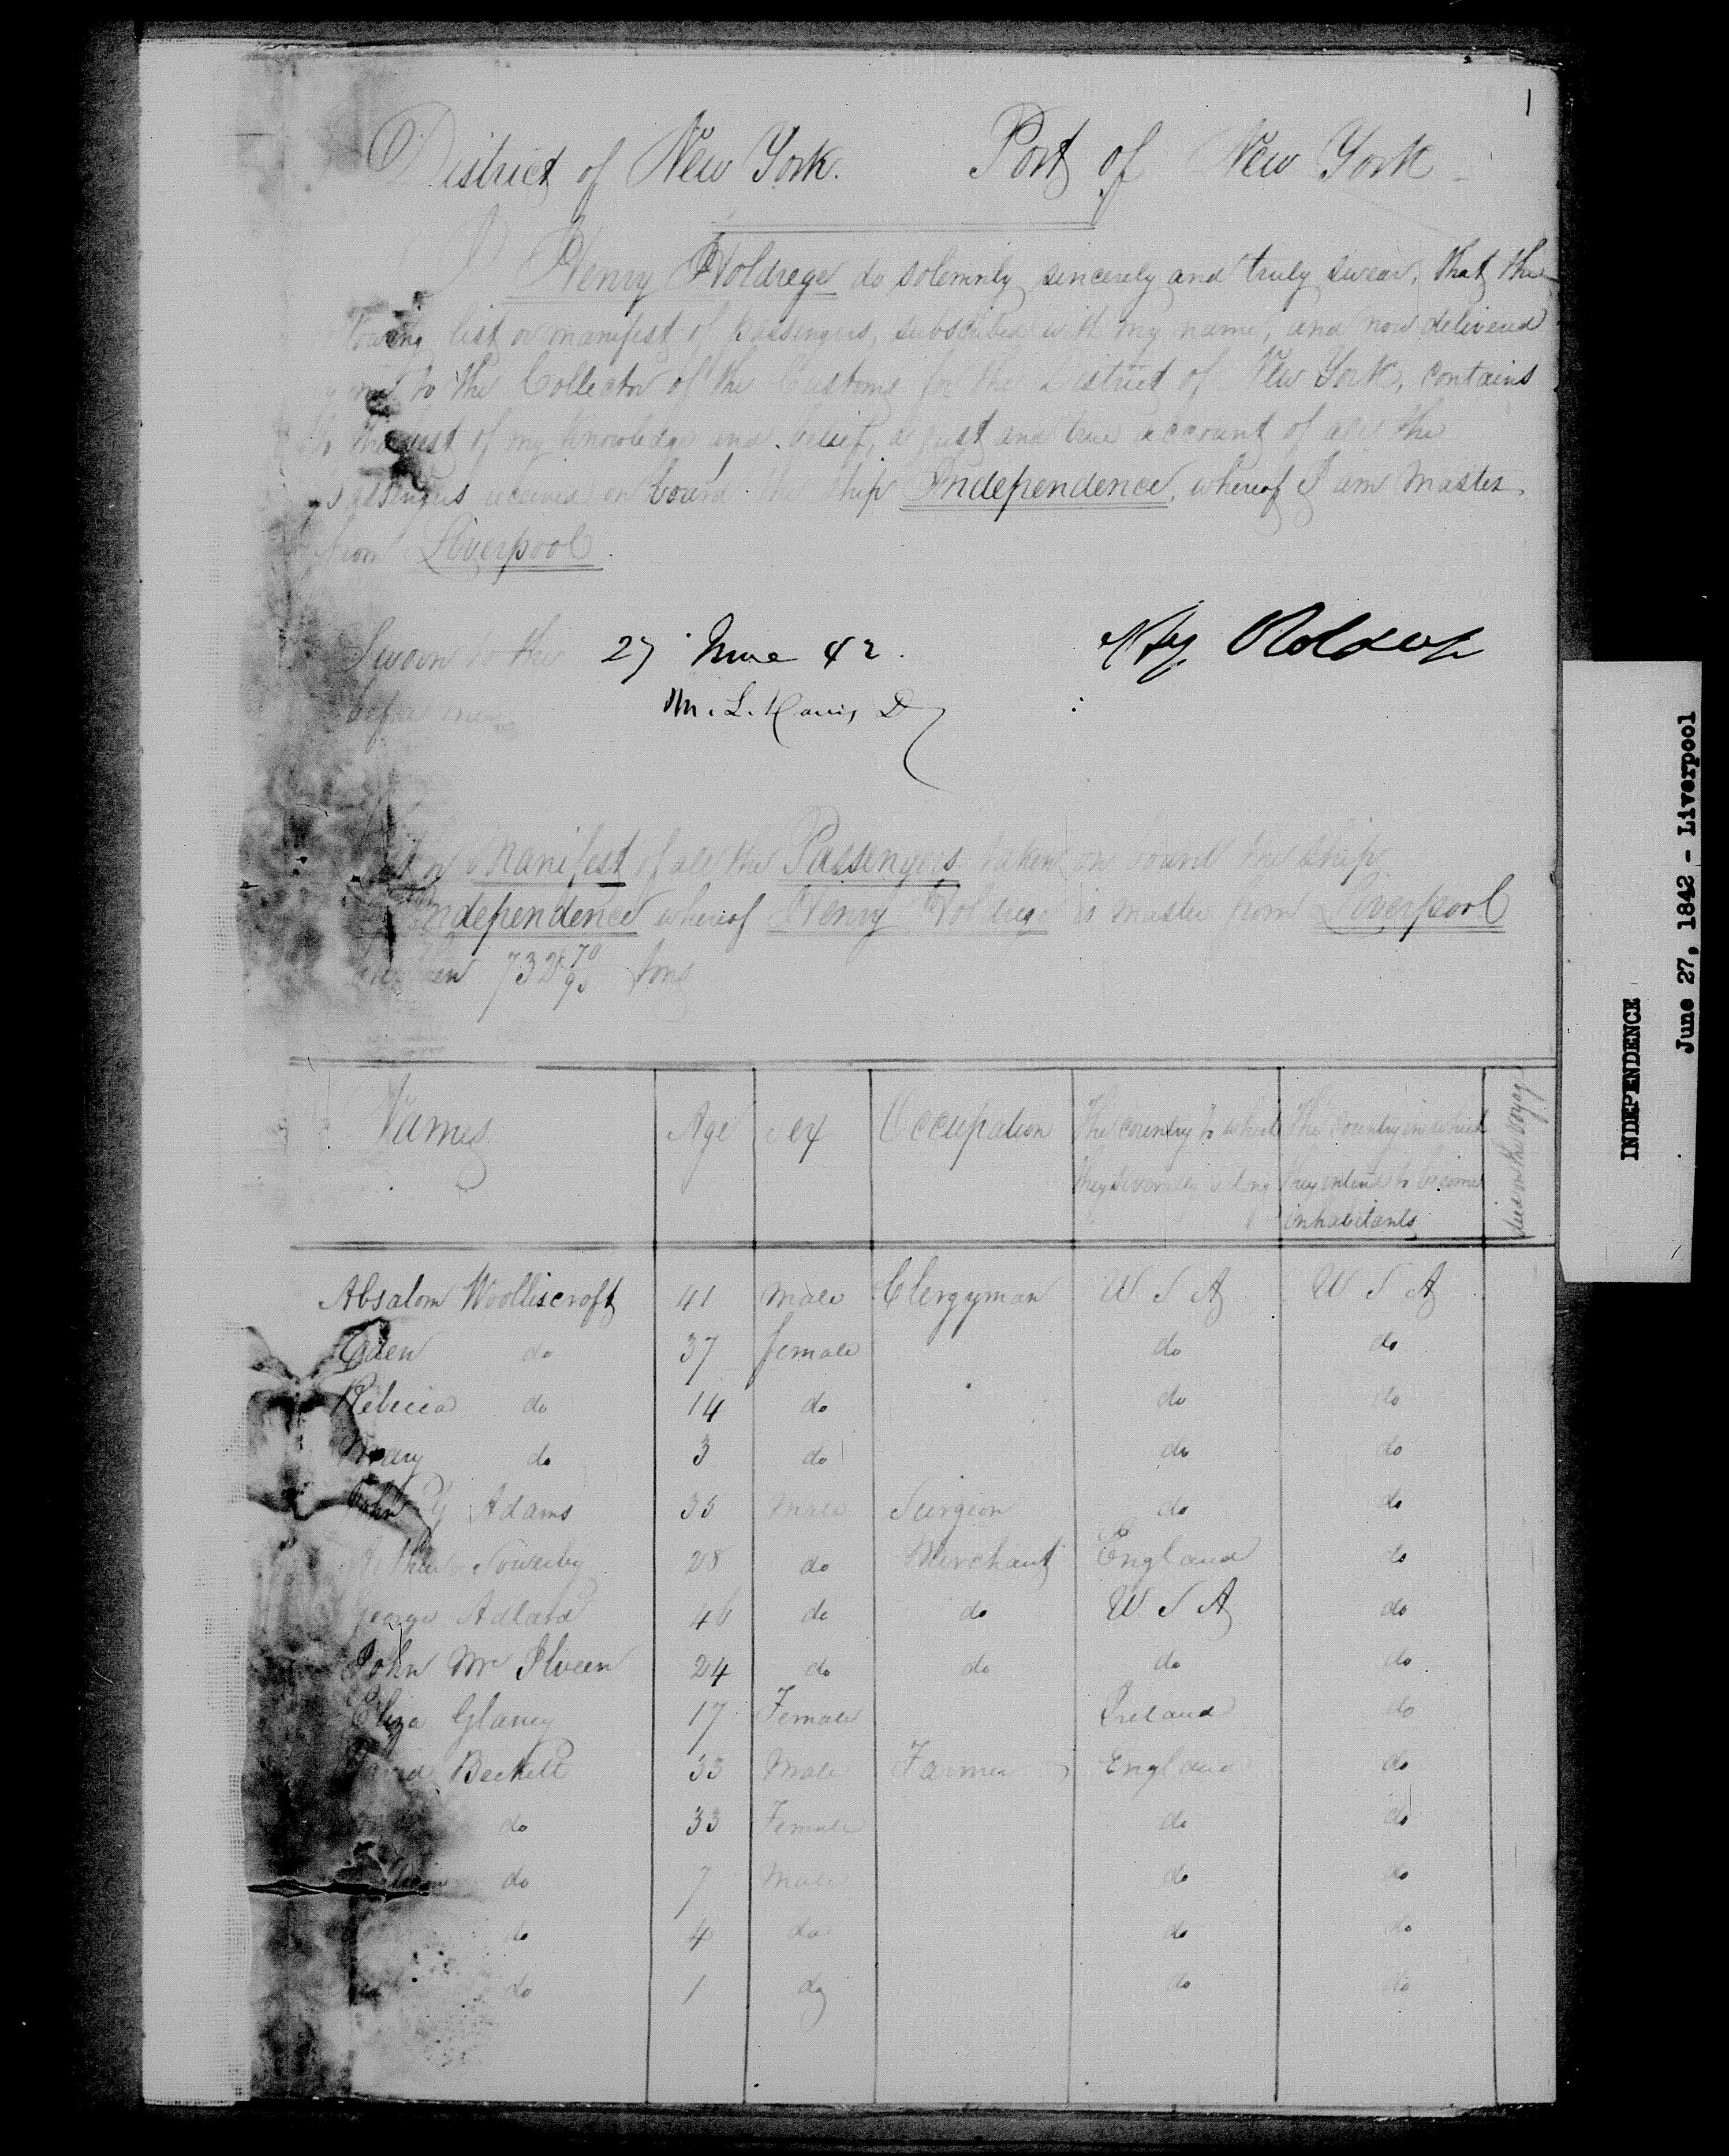 1
District of New York. Port of New York
I Henry Holdrege do solemnly sincerely and truly swear, that the
list or manifest of passengers, subscribed with my name, and now delivered
to the Collector of the Customs for the District of New York, contains
to the best of my knowledge and belief, a just and true account of all the
passengers received on board the ship Independence, whereof I am master
from Liverpool.
Sworn to this 27 June 42. Hy Holdrege
before me M. L. Davis
or Manifest of all the Passengers taken on board the ship
Independence whereof Henry Holdrege is master from Liverpool
burthen 732 70/95 tons
Names Age Sex Occupation The country to which they severally belong The country in which they intend to become inhabitants died on the voyage
Absalom Woolliscroft 41 male Clergyman U S A U S A
do 37 female do do
Rebecca do 14 do do do
Mary do 3 do do do
John Adams 35 Male Surgeon do do
Arthur Sowerby 28 do Merchant England do
George Adlard 46 do do U S A do
John Mc Ilveen 24 do do do do
Eliza Glancy 17 Female Ireland do
David Beckett 33 Male Farmer England do
do 33 Female do do
do 7 Male do do
do 4 do do do
do 1 do do do
INDEPENDENCE
June 27, 1842 - Liverpool